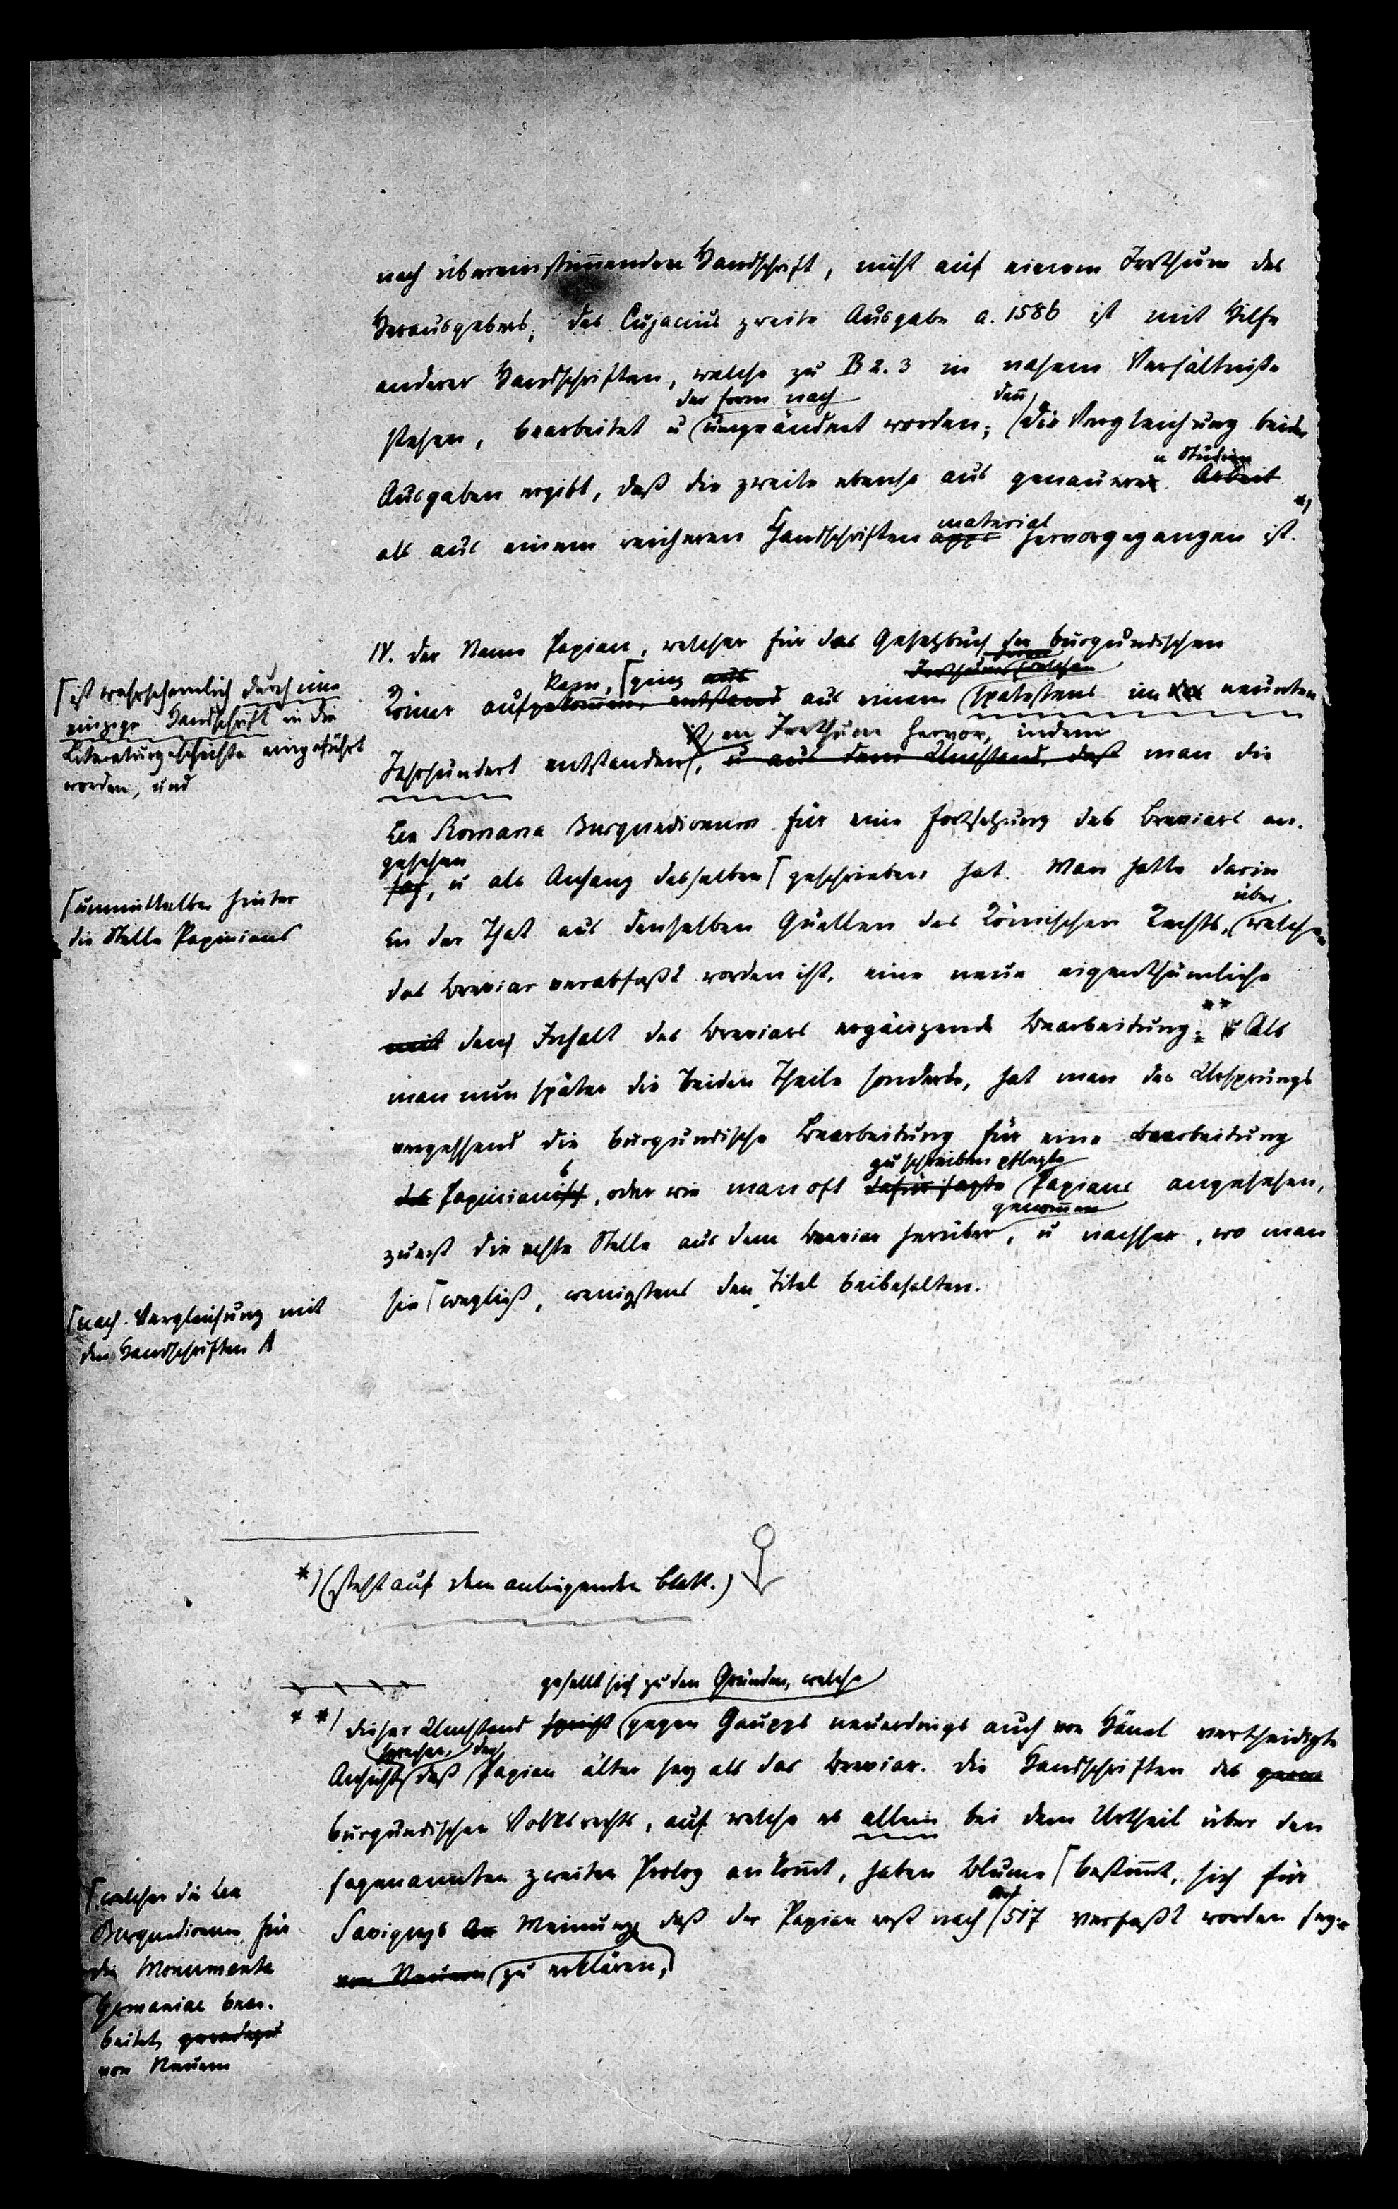 nach übereinstim̅enden Handschrift, nicht auf einem Irrthum des
Herausgebers; des Cujacius zweite Ausgabe a. 1586 ist mit Hilfe
anderer Handschriften, welche zu B 2. 3 in nahem Verhältniße
der Form nach
den̅
stehen, bearbeitet u umgeändert worden; die Vergleichung beider
u Studien
Ausgaben ergibt, daß die zweite ebenso aus genauerer Arbeit
material *)
als aus einem reicheren Handschriften hervorgegangen ist.
IV. Der Name Papian, welcher für das Gesetzbuch der burgundischen
Irrthum welchen
kam, ging aus
Römer aufgekom̅en, entstand aus einem spätestens im neunten
en Irrthum hervor, indem
Jahrhundert entstanden, u aus dem Umstand, daß man die
Lex Romana Burgundionum für eine Fortsetzung des Breviars an-
gesehen
sah, u als Anhang desselben geschrieben hat. Man hatte darin
über
in der That aus denselben Quellen des Römischen Rechts, welche
das Breviar verabfaßt worden ist, eine neue eigenthümliche
mit dem Inhalt des Breviars ergänzende Bearbeitung. ** Als
man nun später die beiden Theile sonderte, hat man des Ursprungs
vergessend die burgundische Bearbeitung für eine Bearbeitung
zu schreiben pflegte
des Papinianus, oder wie man oft dafür sagte Papians angesehen,
genom̅en
zuerst die echte Stelle aus dem Breviar herüber, u nachher, wo man
sie wegließ, wenigstens den Titel beibehalten.
ist wahrscheinlich durch eine
einzige Handschrift in die
Literaturgeschichte eingeführt
worden, und
unmittelbar hinter
die Stelle Papinians
nach Vergleichung mit
den Handschriften A
*) (steht auf dem anliegenden Blatt.)
gesellt sich zu den Gründen, welche
**) Dieser Umstand spricht gegen Gaupps neuerdings auch von Hänel vertheidigte
sprechen, der
Ansicht, daß Papian älter sey als das Breviar. Die Handschriften des
burgundischen Volksrechts, auf welche es allein bei dem Urtheil über den
sogenannten zweiten Prolog ankom̅t, haben Blume bestim̅t, sich für
Savignys Meinung daß der Papian erst nach 517 verfaßt worden sey,
von Neuem zu erklären,
welcher die Lex
Burgundionum für
die Monumenta
Germaniae bear-
beitet, geradezu
von Neuem